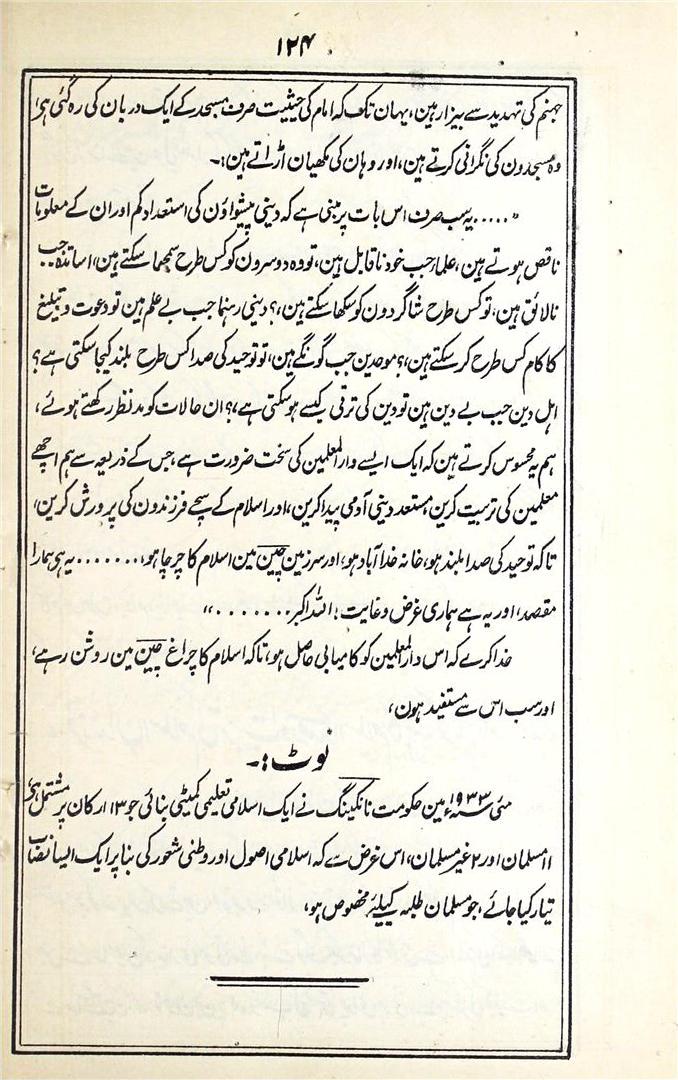 ۱۲۴
جہنم کی تہدید سے بیزار ہین، یہان تک کہ امام کی حیثیت صرف مسجد کے ایک دربان کی رہ گئی ہی
وہ مسجدون کی نگرانی کرتے ہین، اور وہان کی مکھیان اڑاتے ہین:۔
"..... یہ سب صرف اس بات پر مبنی ہے کہ دینی پیشواؤن کی استعداد کم اور ان کے معلومات
ناقص ہوتے ہین، علماء جب خود ناقابل ہین، تو وہ دوسرون کو کس طرح سمجھا سکتے ہین، اساتذہ جب
نالائق ہین، تو کس طرح شاگردون کو سکھا سکتے ہین،؟ دینی رہنما جب بے علم ہین تو دعوت و تبلیغ
کا کام کس طرح کر سکتے ہین،؟ موحدین جب گونگے ہین، تو توحید کی صدا کس طرح بلند کیجا سکتی ہے؟
اہل دین جب بے دین ہین تو دین کی ترقی کیسے ہو سکتی ہے،؟ ان حالات کو مد نظر رکھتے ہوئے،
ہم یہ محسوس کرتے ہین کہ ایک ایسے دار المعلمین کی سخت ضرورت ہے، جس کے ذریعہ سے ہم اچھے
معلمین کی تربیت کرین، مستعد دینی آدمی پیدا کرین، اور اسلام کے سچے فرزندون کی پرورش کرین،
تاکہ توحید کی صدا بلند ہو، خانہ خدا آباد ہو، اور سرزمین چین مین اسلام کا چرچا ہو،....... یہ ہی ہمارا
مقصد، اور یہ ہے ہماری غرض و غایت، اللہ اکبر ......."
خدا کرے کہ اس دار المعلمین کو کامیابی حاصل ہو، تاکہ اسلام کا چراغ چین مین روشن رہے،
اور سب اس سے مستفید ہون،
نوٹ:۔
مئی ۱۹۳۳ء مین حکومت نانکینگ نے ایک اسلامی تعلیمی کمیٹی بنائی جو ۱۳ ارکان پر مشتمل ہی
۱۱ مسلمان اور ۲ غیر مسلمان، اس غرض سے کہ اسلامی اصول اور وطنی شعور کی بنا پر ایک ایسا نصاب
تیار کیا جائے، جو مسلمان طلبہ کیلئے مخصوص ہو،